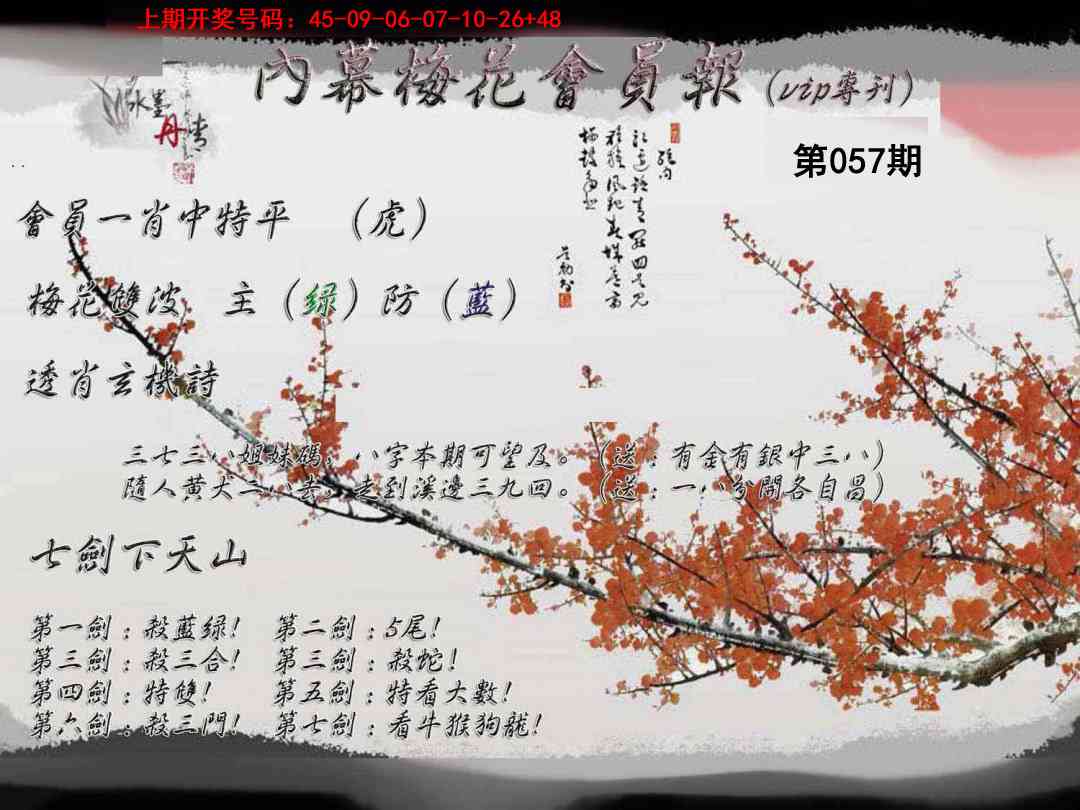 上期开奖号码：45-09-06-07-10-26+48
內幕梅花會員報（vip專刊）
水墨
丹青
第057期
會員一肖中特平 （虎）
梅花雙波 主（绿）防（藍）
透肖玄機詩
三七三八姐妹碼，八字本期可望及。（送：有金有銀中三八）
隨人黄大二八去，走到溪邊三九四。（送：一八分開各自昌）
七劍下天山
第一劍：殺藍绿！ 第二劍：5尾！
第三劍：殺三合！ 第三劍：殺蛇！
第四劍：特雙！ 第五劍：特看大數！
第六劍：殺三門！ 第七劍：看牛猴狗龍！